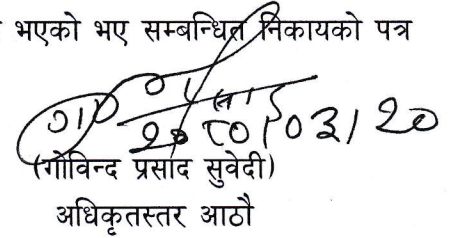 भएको भए सम्बन्धित निकायको पत्र
२०८०।०३।२०
(गोविन्द प्रसाद सुवेदी)
अधिकृतस्तर आठौ